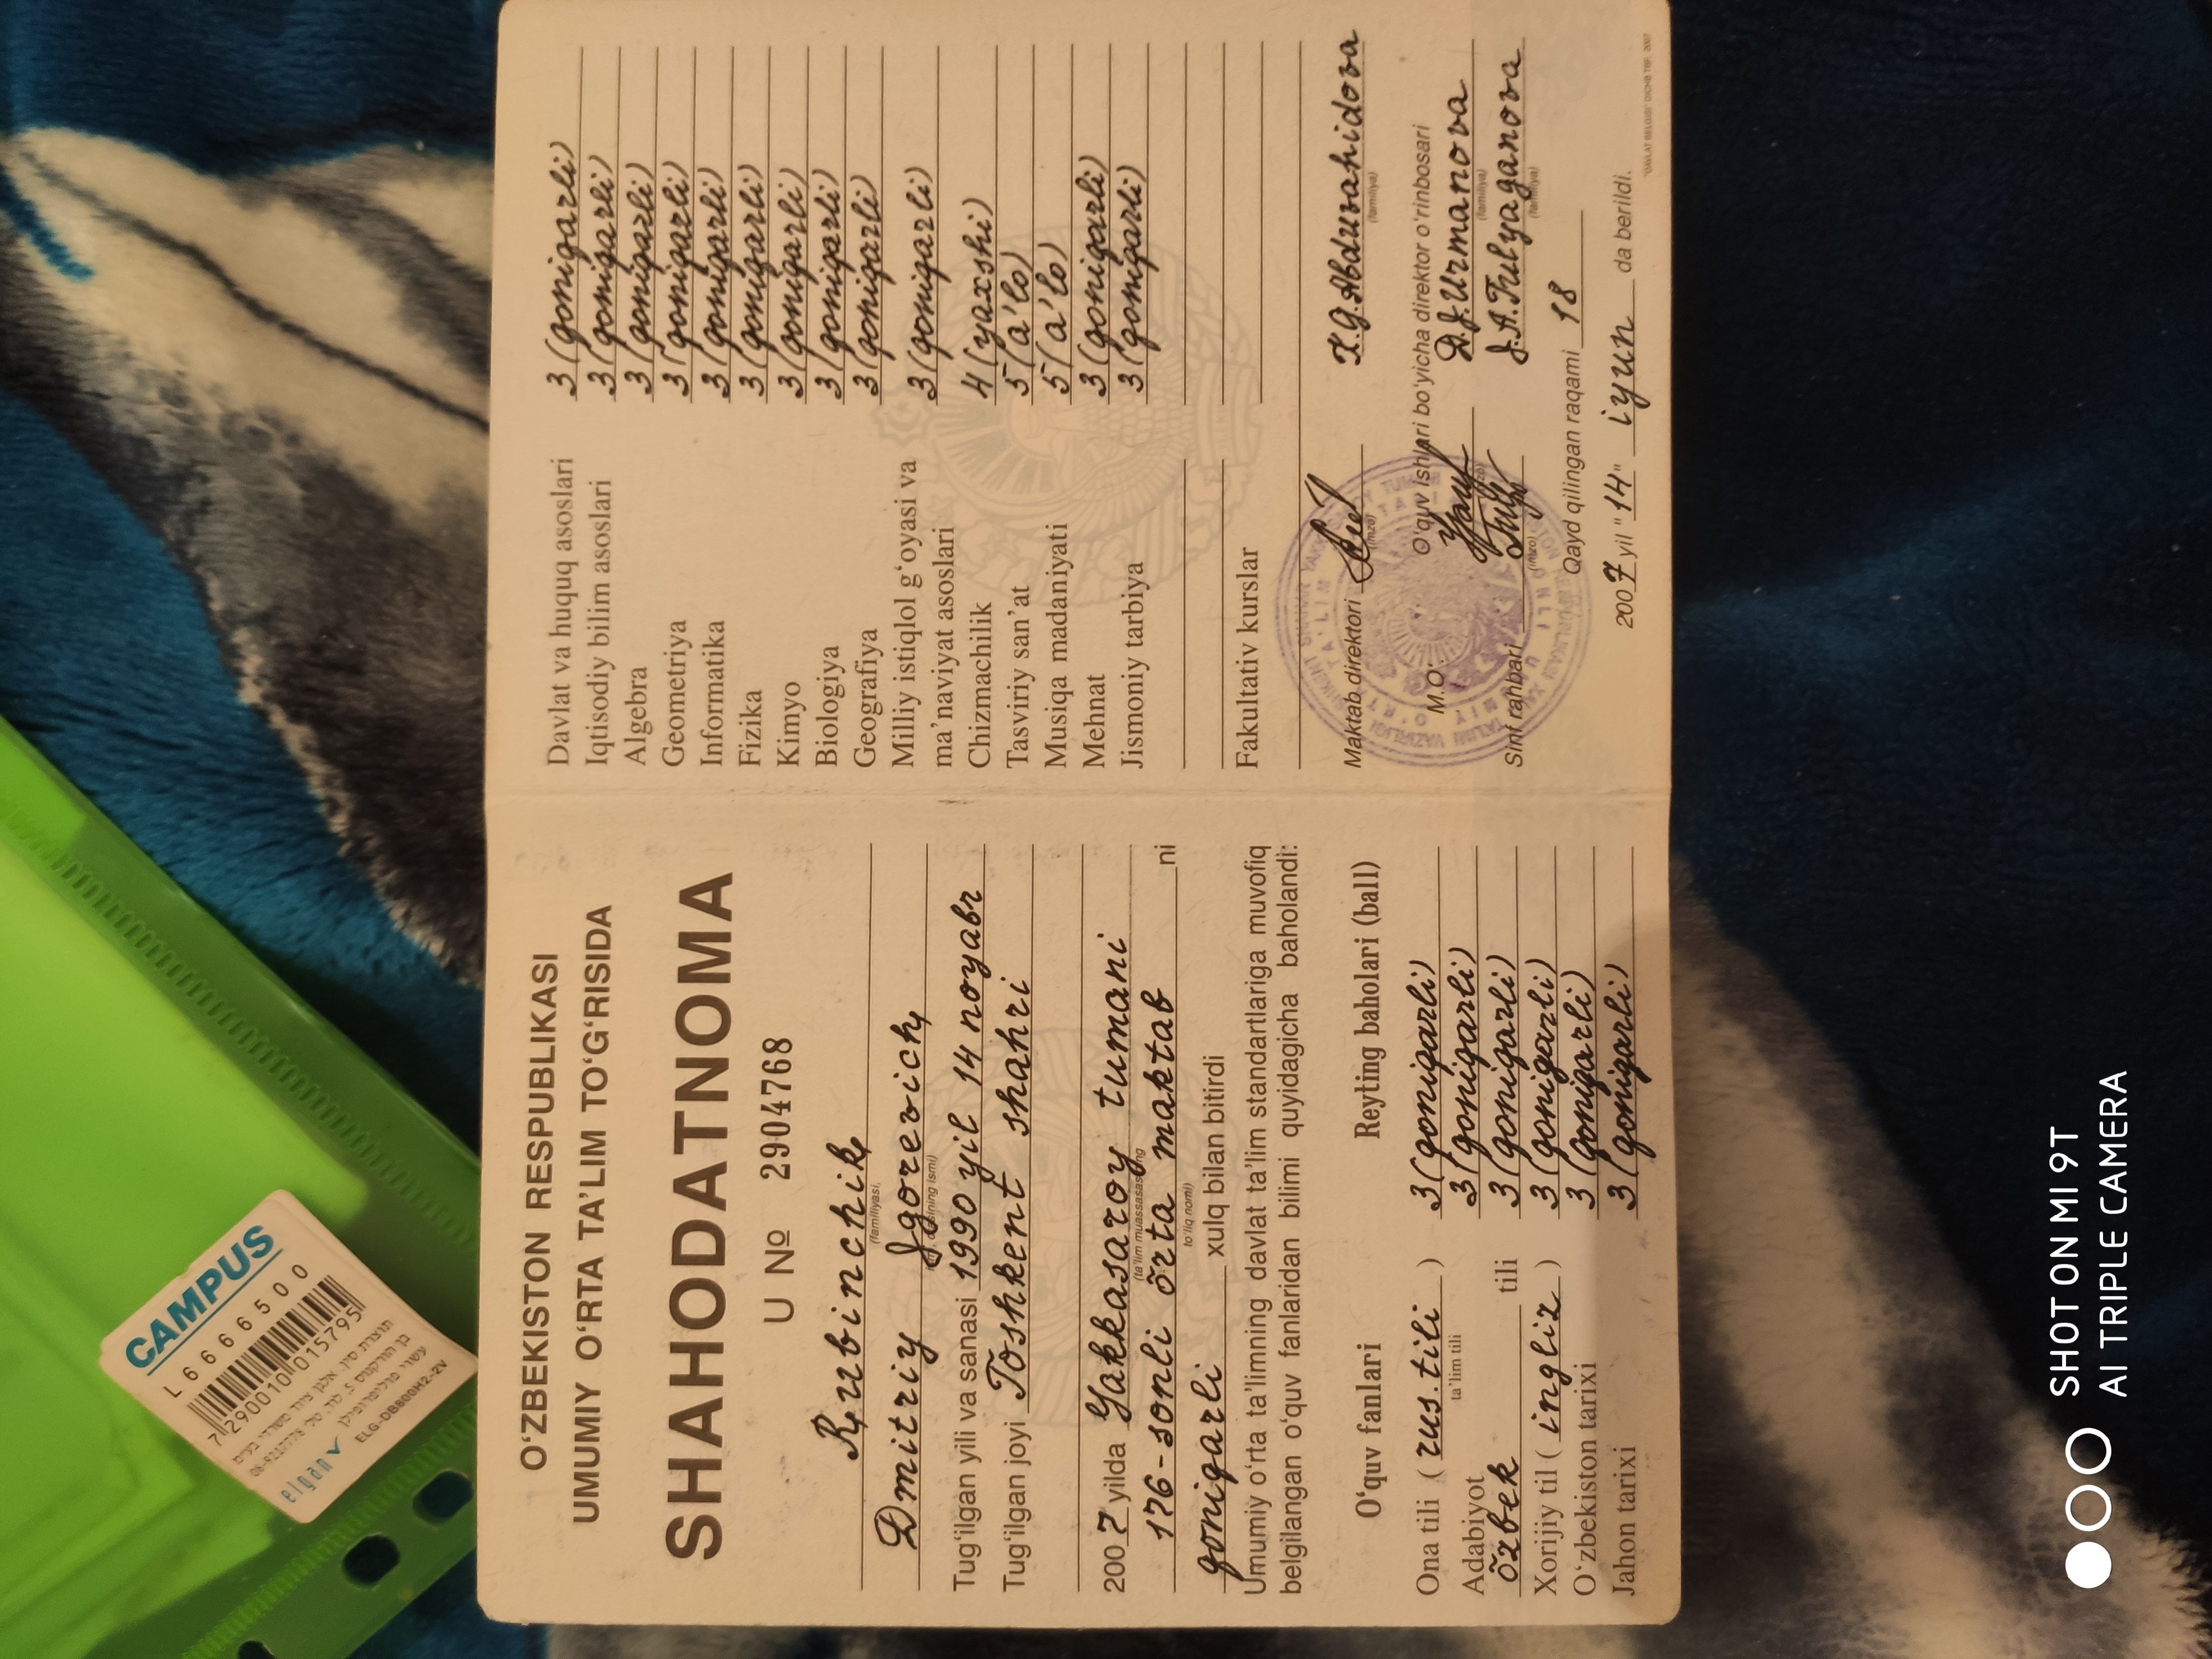 O‘ZBEKISTON RESPUBLIKASI
UMUMIY O‘RTA TA’LIM TO‘G‘RISIDA
SHAHODATNOMA
U № 2904768
Rubinchik
(familiyasi,
Dmitriy Igorevich
Tug‘ilgan yili va sanasi 1990 yil 14 noyabr
Tug‘ilgan joyi Toshkent shahri
2007 yilda Yakkasaroy tumani
(ta’lim muassasasining
176-sonli õrta maktab ni
to‘liq nomi)
qoniqarli xulq bilan bitirdi
Umumiy o‘rta ta’limning davlat ta’lim standartlariga muvofiq
belgilangan o‘quv fanlaridan bilimi quyidagicha baholandi:
O‘quv fanlari Reyting baholari (ball)
Ona tili (rus.tili) 3 (qoniqarli)
ta’lim tili
Adabiyot 3 (qoniqarli)
õzbek tili 3 (qoniqarli)
Xorijiy til (ingliz) 3 (qoniqarli)
O‘zbekiston tarixi 3 (qoniqarli)
Jahon tarixi 3 (qoniqarli)
Davlat va huquq asoslari 3 (qoniqarli)
Iqtisodiy bilim asoslari 3 (qoniqarli)
Algebra 3 (qoniqarli)
Geometriya 3 (qoniqarli)
Informatika 3 (qoniqarli)
Fizika 3 (qoniqarli)
Kimyo 3 (qoniqarli)
Biologiya 3 (qoniqarli)
Geografiya 3 (qoniqarli)
Milliy istiqlol g‘oyasi va
ma’naviyat asoslari 3 (qoniqarli)
Chizmachilik 4 (yaxshi)
Tasviriy san’at 5 (a’lo)
Musiqa madaniyati 5 (a’lo)
Mehnat 3 (qoniqarli)
Jismoniy tarbiya 3 (qoniqarli)
Fakultativ kurslar
Maktab direktori X.G.Abduvahidova
(imzo) (familiya)
O‘quv ishlari bo‘yicha direktor o‘rinbosari
M.O‘. D.J.Urmanova
(familiya)
Sinf rahbari J.A.Tulyaganova
(imzo) (familiya)
Qayd qilingan raqami 18
2007 yil "14" iyun da berildi.
CAMPUS
L 6 6 6 6 5 0 0
7 290010 015795
elgan
ELG-DB800H2-2V
SHOT ON MI 9T
AI TRIPLE CAMERA